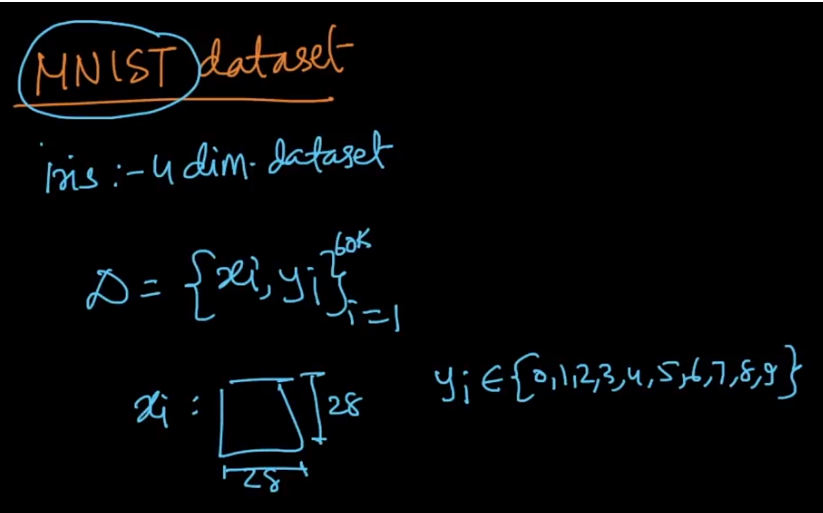 MNIST dataset
iris :- 4 dim. dataset
D = {xi, yi}60K i=1
xi : 28 yi ∈ {0,1,2,3,4,5,6,7,8,9}
28